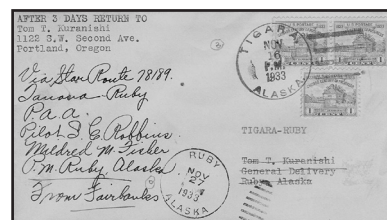 AFTER 3 DAYS RETURN TO
Tom T. Kuranishi
1122 S.W. Second Ave.
Portland, Oregon
Via Star Route 78189.
Tanana-Ruby
P.a.a.
Pilot S. E. Robbins.
Mildred M. Fisher
P.M. Ruby, Alaska
From Fairbanks
TIGARA
NOV
16
P.M.
1933
ALASKA
TIGARA-RUBY
Tom T. Kuranishi
General Delivery
Ruby Alaska
RUBY
NOV
27
1933
ALASKA